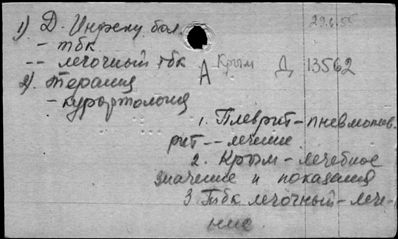 1) Д. Инфекц. бол. 29.6.55
- тбк
-- легочный тбк А Крым Д 13562
2) терапия
- курортология
1. Плеврит - пневмопле-
рит -- лечение
2. Крым - лечебное
значение и показания
3. Тбк легочный - лече-
ние.